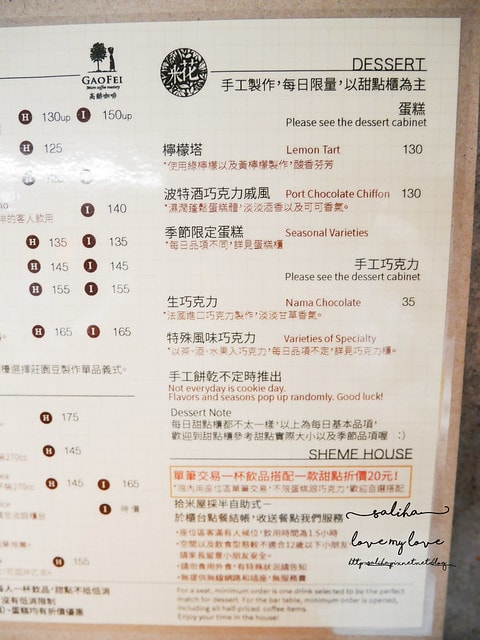 GAOFEI
高飛咖啡
H 130up I 150up
H 125
I 140
的客人飲用
H 135 I 135
H 145 I 145
H 155 I 155
H 165 I 165
選擇莊園豆製作單品義式。
H 175
H 145
H 145 I 165
I 時價
H 155
人一杯飲品,甜點不抵低消
沒有低消限制
蛋糕均有折價優惠
米花
DESSERT
手工製作,每日限量,以甜點櫃為主
蛋糕
Please see the dessert cabinet
檸檬塔 Lemon Tart 130
*使用綠檸檬以及黃檸檬製作,酸香芬芳
波特酒巧克力戚風 Port Chocolate Chiffon 130
*濕潤蓬鬆蛋糕體,淡淡酒香以及可可香氣。
季節限定蛋糕 Seasonal Varieties
*每日品項不同,詳見蛋糕櫃
手工巧克力
Please see the dessert cabinet
生巧克力 Nama Chocolate 35
*法國進口巧克力製作,淡淡甘草香氣。
特殊風味巧克力 Varieties of Specialty
*以茶、酒、水果入巧克力,每日品項不定,詳見巧克力櫃。
手工餅乾不定時推出
Not everyday is cookie day.
Flavors and seasons pop up randomly. Good luck!
Dessert Note
每日甜點櫃都不太一樣,以上為每日基本品項,
歡迎到甜點櫃參考甜點實際大小以及季節品項喔 :)
SHEME HOUSE
單筆交易一杯飲品搭配一款甜點折價20元!
*限內用座位區單筆交易,不限蛋糕跟巧克力,歡迎自選搭配
拾米屋採半自助式-
於櫃台點餐結帳,收送餐點我們服務
·座位區客滿有人候位,飲用時間為1.5小時
·空間以及飲食型態較不適合12歲以下小朋友
請家長留意小朋友安全。
·請勿食用外食,有特殊狀況請告知
·無提供無線網路和插座,無服務費
For a seat, minimum order is one drink selected to be the perfect
match for dessert. For the bar table, minimum order is opened,
including all half-priced coffee items.
Enjoy your time in the house!
saliha
love my love